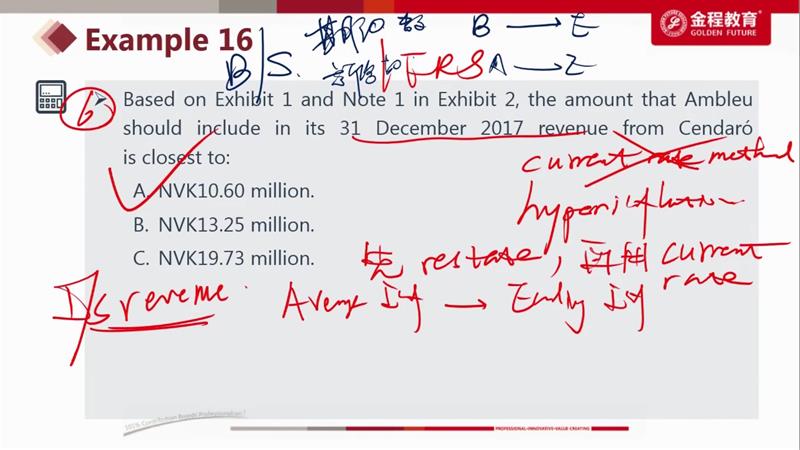 Example 16
金程教育
GOLDEN FUTURE
B → E
B/S. IFRS A → E
6
Based on Exhibit 1 and Note 1 in Exhibit 2, the amount that Ambleu
should include in its 31 December 2017 revenue from Cendaró
is closest to:
current rate method
A. NVK10.60 million.
B. NVK13.25 million.
C. NVK19.73 million.
先 restate, 再用 current
rate
I/S revenue.
PROFESSIONAL·INNOVATIVE·VALUE CREATING